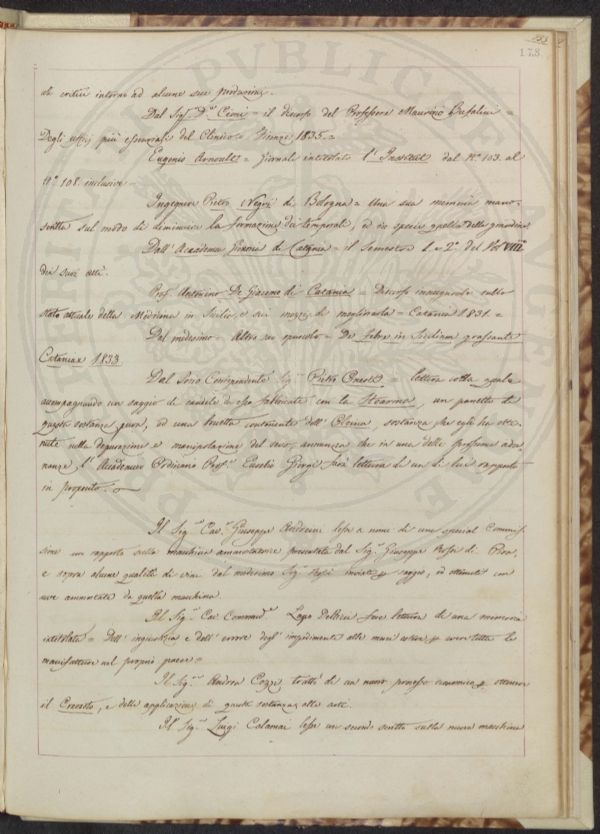 178.
intorno ad alcune sue produzioni.
Dal Sig.r D.r Cioni = il discorso del Professore Maurizio Bufalini =
Degli uffizj più essenziali del Clinico = Firenze 1835. =
Eugenio Arnoult = Giornale intitolato l'Institut dal N.o 103. al
N.o 108. inclusive =
Ingegnere Pietro Negri di Bologna = Una sua memoria mano-
scritta sul modo di diminuire la formazione dei temporali, ed in specie quella della grandine
Dall'Accademia Gioenia di Catania = il Semestre 1.o e 2.o del Vol VIII
dei suoi atti.
Prof. Antonino Di Giacomo di Catania = Discorso inaugurale sullo
stato attuale della Medicina in Sicilia, e sui mezzi di migliorarla = Catania 1831. =
Del medesimo = Altro suo opuscolo = De febre in Siciliam grassante
Catanae 1833.
Dal Socio Corrispondente Sig.r Pietro = lettera colla quale
accompagnando un saggio di candele di esso fabbricate con la Stearina, un panetto di
questa sostanza pura, ed una boccetta contenente dell'Oleina, sostanza che egli ha otte-
nute nella depurazione e manipolazione del sevo, annunzia che in una delle prossime adu-
nanze l'Accademico Ordinario Prof.r Eusebio Giorgi farà lettura di un di lui rapporto
in proposito.
Il Sig.r Cav.r Giuseppe lesse a nome di una special Commis-
sione un rapporto sulla macchina ammostatoria presentata dal Sig.r Giuseppe Rossi di
e sopra alcune qualità di vino dal medesimo Sig.r Rossi inviate saggio, ed ottenuti con
uve ammostate da quella macchina.
Il Sig.r Cav. Commend.r Lapo de Ricci fece lettura di una memoria
intitolata = Dell'ingiustizia e dell'errore degl'impedimenti alle per aver tutte le
manifatture nel proprio paese =
Il Sig.r Andrea Cozzi trattò di un nuovo processo economico per ottenere
il Creosoto, e delle applicazioni di questa sostanza alle arti.
Il Sig.r Luigi Calamai lesse un secondo scritto sulla nuova macchina